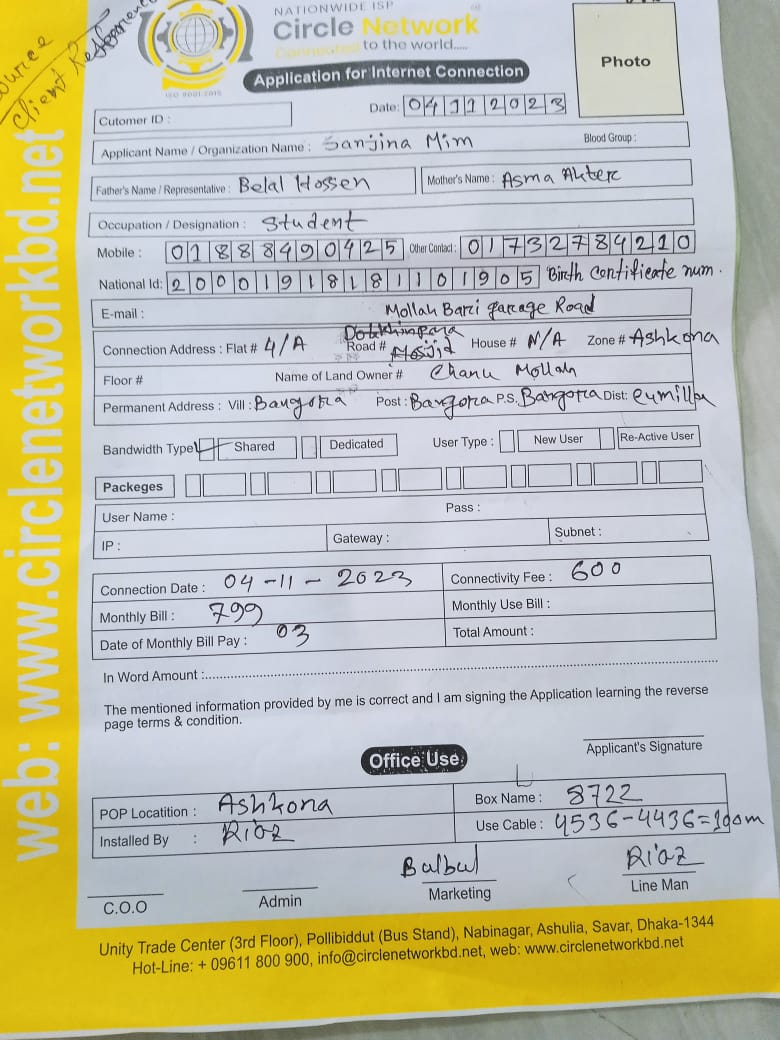 Source
Client Reference
NATIONWIDE ISP
Circle Network
Connected to the world.....
ISO 9001:2015
Application for Internet Connection
Photo
Cutomer ID :
Date: 04112023
Applicant Name / Organization Name : Sanjina Mim Blood Group :
Father's Name / Representative : Belal Hossen Mother's Name : Asma Akter
Occupation / Designation : Student
Mobile : 01888490425 Other Contact : 01732784210
National Id: 20001918181101905 Birth Certificate num.
E-mail : Mollah Bari garage Road
Connection Address : Flat # 4/A Road # Mosjid House # N/A Zone # Ashkona
Floor # Name of Land Owner # Chanu Mollah
Permanent Address : Vill : Bangora Post : Bangora P.S. Bangora Dist: Cumilla
Bandwidth Type Shared Dedicated User Type : New User Re-Active User
Packeges
User Name : Pass :
IP : Gateway : Subnet :
Connection Date : 04-11-2023 Connectivity Fee : 600
Monthly Bill : 799 Monthly Use Bill :
Date of Monthly Bill Pay : 03 Total Amount :
In Word Amount :
The mentioned information provided by me is correct and I am signing the Application learning the reverse
page terms & condition.
Applicant's Signature
Office Use
POP Locatition : Ashkona Box Name : 8722
Installed By : Riaz Use Cable : 4536-4436=100m
Bulbul Riaz
C.O.O Admin Marketing Line Man
Unity Trade Center (3rd Floor), Pollibiddut (Bus Stand), Nabinagar, Ashulia, Savar, Dhaka-1344
Hot-Line: + 09611 800 900, info@circlenetworkbd.net, web: www.circlenetworkbd.net
web: www.circlenetworkbd.net